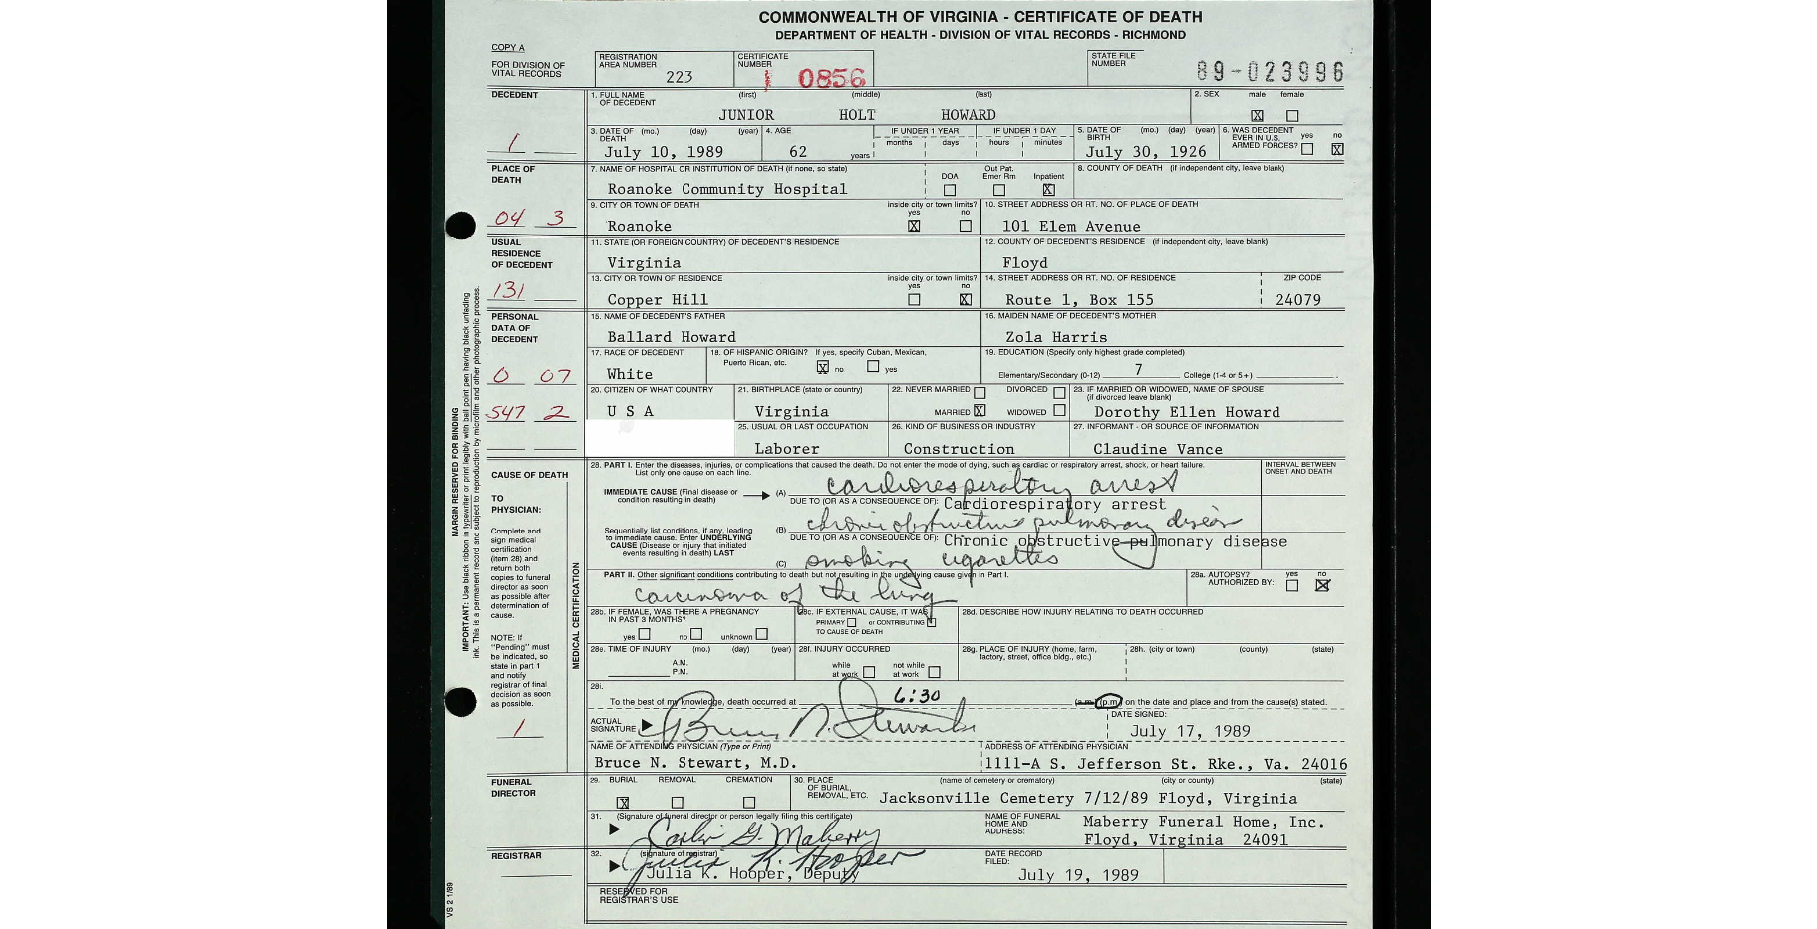 COMMONWEALTH OF VIRGINIA - CERTIFICATE OF DEATH
DEPARTMENT OF HEALTH - DIVISION OF VITAL RECORDS - RICHMOND
COPY A
FOR DIVISION OF VITAL RECORDS
REGISTRATION AREA NUMBER 223
CERTIFICATE NUMBER 0856
STATE FILE NUMBER 89-023996
DECEDENT
1. FULL NAME OF DECEDENT (first) (middle) (last)
JUNIOR HOLT HOWARD
2. SEX male female
X
1
3. DATE OF DEATH (mo.) (day) (year)
July 10, 1989
4. AGE
62 years
IF UNDER 1 YEAR months days
IF UNDER 1 DAY hours minutes
5. DATE OF BIRTH (mo.) (day) (year)
July 30, 1926
6. WAS DECEDENT EVER IN U.S. ARMED FORCES? yes no
X
PLACE OF DEATH
04 3
7. NAME OF HOSPITAL OR INSTITUTION OF DEATH (if none, so state)
Roanoke Community Hospital
DOA Out Pat. Emer Rm Inpatient
X
8. COUNTY OF DEATH (if independent city, leave blank)
9. CITY OR TOWN OF DEATH
Roanoke
inside city or town limits? yes no
X
10. STREET ADDRESS OR RT. NO. OF PLACE OF DEATH
101 Elem Avenue
USUAL RESIDENCE OF DECEDENT
131
11. STATE (OR FOREIGN COUNTRY) OF DECEDENT'S RESIDENCE
Virginia
12. COUNTY OF DECEDENT'S RESIDENCE (if independent city, leave blank)
Floyd
13. CITY OR TOWN OF RESIDENCE
Copper Hill
inside city or town limits? yes no
X
14. STREET ADDRESS OR RT. NO. OF RESIDENCE
Route 1, Box 155
ZIP CODE
24079
PERSONAL DATA OF DECEDENT
0 07
547 2
15. NAME OF DECEDENT'S FATHER
Ballard Howard
16. MAIDEN NAME OF DECEDENT'S MOTHER
Zola Harris
17. RACE OF DECEDENT
White
18. OF HISPANIC ORIGIN? If yes, specify Cuban, Mexican, Puerto Rican, etc.
X no yes
19. EDUCATION (Specify only highest grade completed)
Elementary/Secondary (0-12) 7 College (1-4 or 5+)
20. CITIZEN OF WHAT COUNTRY
U S A
21. BIRTHPLACE (state or country)
Virginia
22. NEVER MARRIED DIVORCED
MARRIED X WIDOWED
23. IF MARRIED OR WIDOWED, NAME OF SPOUSE (if divorced leave blank)
Dorothy Ellen Howard
25. USUAL OR LAST OCCUPATION
Laborer
26. KIND OF BUSINESS OR INDUSTRY
Construction
27. INFORMANT - OR SOURCE OF INFORMATION
Claudine Vance
MARGIN RESERVED FOR BINDING
IMPORTANT: Use black ribbon in typewriter or print legibly with ball point pen having black unfading ink. This is a permanent record and subject to reproduction by microfilm and other photographic process.
CAUSE OF DEATH
TO PHYSICIAN:
Complete and sign medical certification (item 28) and return both copies to funeral director as soon as possible after determination of cause.
NOTE: If "Pending" must be indicated, so state in part 1 and notify registrar of final decision as soon as possible.
1
MEDICAL CERTIFICATION
28. PART I. Enter the diseases, injuries, or complications that caused the death. Do not enter the mode of dying, such as cardiac or respiratory arrest, shock, or heart failure.
List only one cause on each line.
INTERVAL BETWEEN ONSET AND DEATH
IMMEDIATE CAUSE (Final disease or condition resulting in death)
(A) cardiorespiratory arrest
DUE TO (OR AS A CONSEQUENCE OF): Cardiorespiratory arrest
Sequentially list conditions, if any, leading to immediate cause. Enter UNDERLYING CAUSE (Disease or injury that initiated events resulting in death) LAST
(B) chronic obstructive pulmonary disease
DUE TO (OR AS A CONSEQUENCE OF): Chronic obstructive pulmonary disease
(C) smoking cigarettes
PART II. Other significant conditions contributing to death but not resulting in the underlying cause given in Part I.
carcinoma of the lung
28a. AUTOPSY? AUTHORIZED BY: yes no
X
28b. IF FEMALE, WAS THERE A PREGNANCY IN PAST 3 MONTHS?
yes no unknown
28c. IF EXTERNAL CAUSE, IT WAS
PRIMARY or CONTRIBUTING
TO CAUSE OF DEATH
28d. DESCRIBE HOW INJURY RELATING TO DEATH OCCURRED
28e. TIME OF INJURY (mo.) (day) (year)
A.N.
P.N.
28f. INJURY OCCURRED
while at work not while at work
28g. PLACE OF INJURY (home, farm, factory, street, office bldg., etc.)
28h. (city or town) (county) (state)
28i.
To the best of my knowledge, death occurred at 6:30 (a.m.) (p.m.) on the date and place and from the cause(s) stated.
ACTUAL SIGNATURE Bruce N. Stewart
DATE SIGNED:
July 17, 1989
NAME OF ATTENDING PHYSICIAN (Type or Print)
Bruce N. Stewart, M.D.
ADDRESS OF ATTENDING PHYSICIAN
1111-A S. Jefferson St. Rke., Va. 24016
FUNERAL DIRECTOR
29. BURIAL REMOVAL CREMATION
X
30. PLACE OF BURIAL, REMOVAL, ETC. (name of cemetery or crematory) (city or county) (state)
Jacksonville Cemetery 7/12/89 Floyd, Virginia
31. (Signature of funeral director or person legally filing this certificate)
Carlin G. Maberry
NAME OF FUNERAL HOME AND ADDRESS:
Maberry Funeral Home, Inc.
Floyd, Virginia 24091
REGISTRAR
32. (signature of registrar)
Julia K. Hooper
Julia K. Hooper, Deputy
DATE RECORD FILED:
July 19, 1989
RESERVED FOR REGISTRAR'S USE
VS 2 1/89